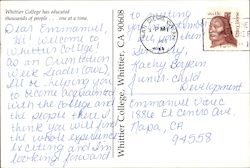 Whittier College has educated
thousands of people . . . one at a time.
Dear Emmanuel,
Hi! Welcome to
Whittier College!
As an Orientation
Week Leader (OWL),
I'll be helping you
to become acquainted
with the college and
the people there. I
think you will find
the whole experience
exciting and I'm
looking forward
Whittier College, Whittier, CA 90608
to
you
Kathy
Junior-Child
Development
Emmanuel
1886 El Centro Ave.
Napa, CA
94558